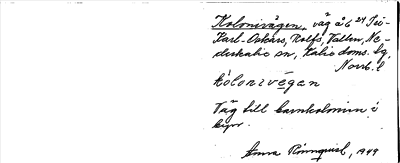 Kolonivägen, väg å 6 24
Karl-Oskars, Rolfs, Vallen, Ne-
derkalix sn, Kalix doms. bg,
Norrb. l
kòlonivégan
Väg till barnkolonin i
byn.
Rönnqvist, 1949